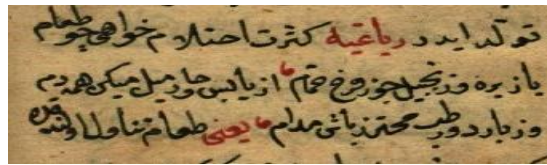 تولد آید در رباعیه کثرت احتلام خواهی چو طعام
با زیره و زنجبیل جوز و خ تمام از یابس حار میل میکن همه دم
وز بارد و رطب محترز باش مدام یعنی طعام تناول